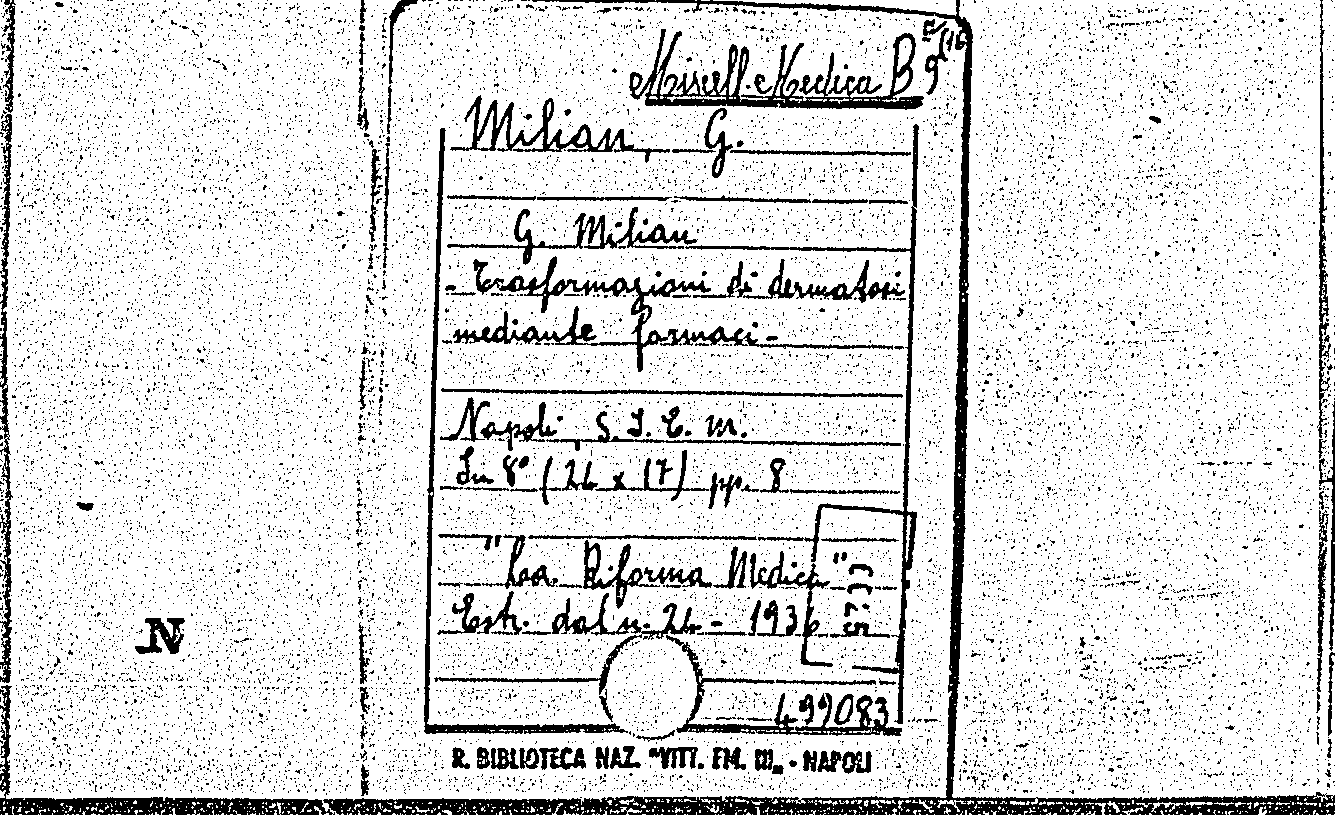 Miscell. Medica B 9
(16
Milian, G.
G. Milian
- Trasformazioni di dermatosi
mediante farmaci -
Napoli, S. I. E. M.
In 8° (24 x 17) pp. 8
"La Riforma Medica"
Estr. dal n. 24 - 1936
499083
R. BIBLIOTECA NAZ. "VITT. EM. III„ - NAPOLI
N